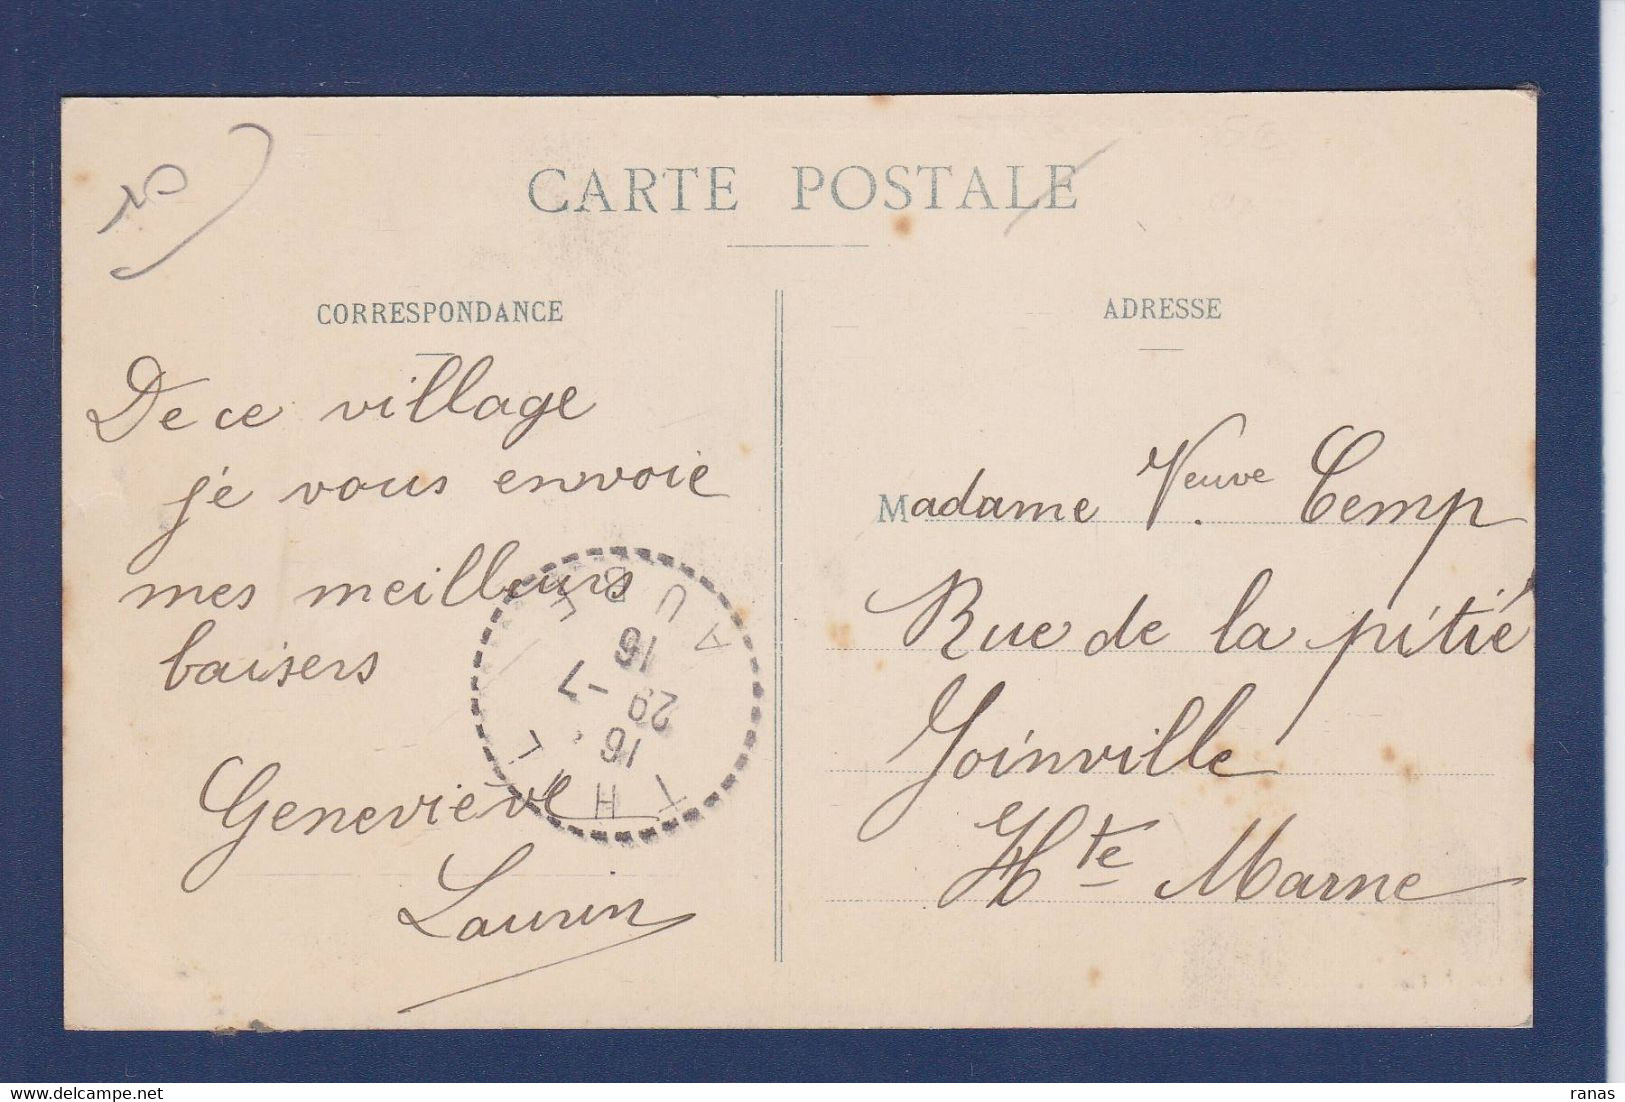 CARTE POSTALE
CORRESPONDANCE
De ce village
je vous envoie
mes meilleurs
baisers
Geneviève
Laurin
ADRESSE
Madame Veuve Cemp
Rue de la pitié
Joinville
Hte Marne
AUBE
16
29 -7
16
THIL
ranas